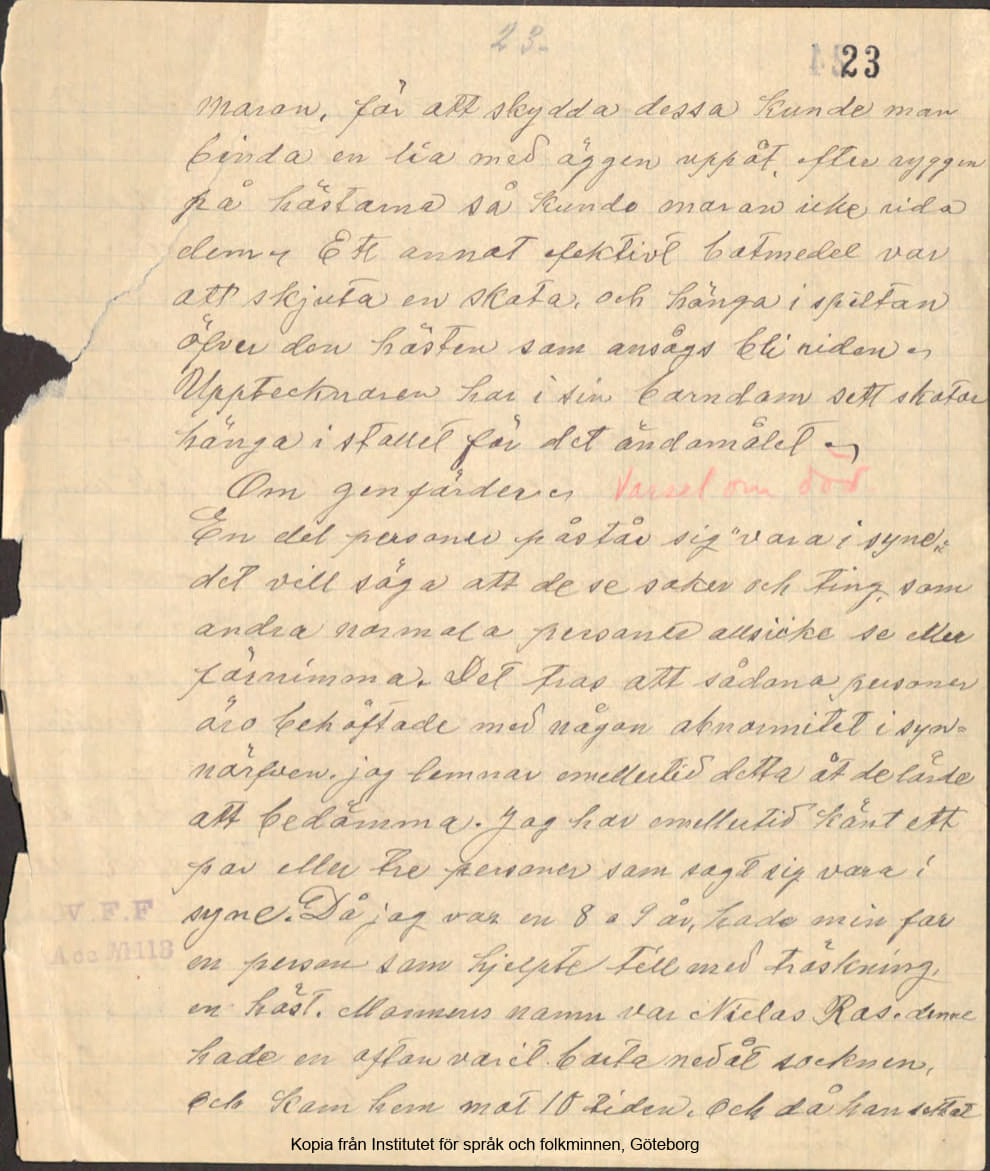 23.
23
maran, för att skydda dessa kunde man
binda en lia med äggen uppåt, efter ryggen
på hästarna så kunde maran icke rida
dem. Ett annat efektivt botmedel var
att skjuta en skata, och hänga i spiltan
öfver den hästen som ansågs bli riden.
Upptecknaren har i sin barndom sett skator
hänga i stallet för det ändamålet.
Om genfärder. Varsel om död.
En del personer påstår sig "vara i syne",
det vill säga att de se saker och ting, som
andra normala personer allsicke se eller
förnimma. Det tros att sådana personer
äro behäftade med någon abnormitet i syn=
närfven. jag lemnar emellertid detta åt de lärde
att bedömma. Jag har emellertid känt ett
par eller tre personer som sagt sig vara i
syne. Då jag var en 8 a 9 år, hade min far
en person som hjelpte till med tröskning,
en höst. Mannens namn var Niclas Ras. denne
hade en afton varit borta nedåt socknen,
och kom hem mot 10 tiden. och då han
V.F.F
Acc № 113
Kopia från Institutet för språk och folkminnen, Göteborg